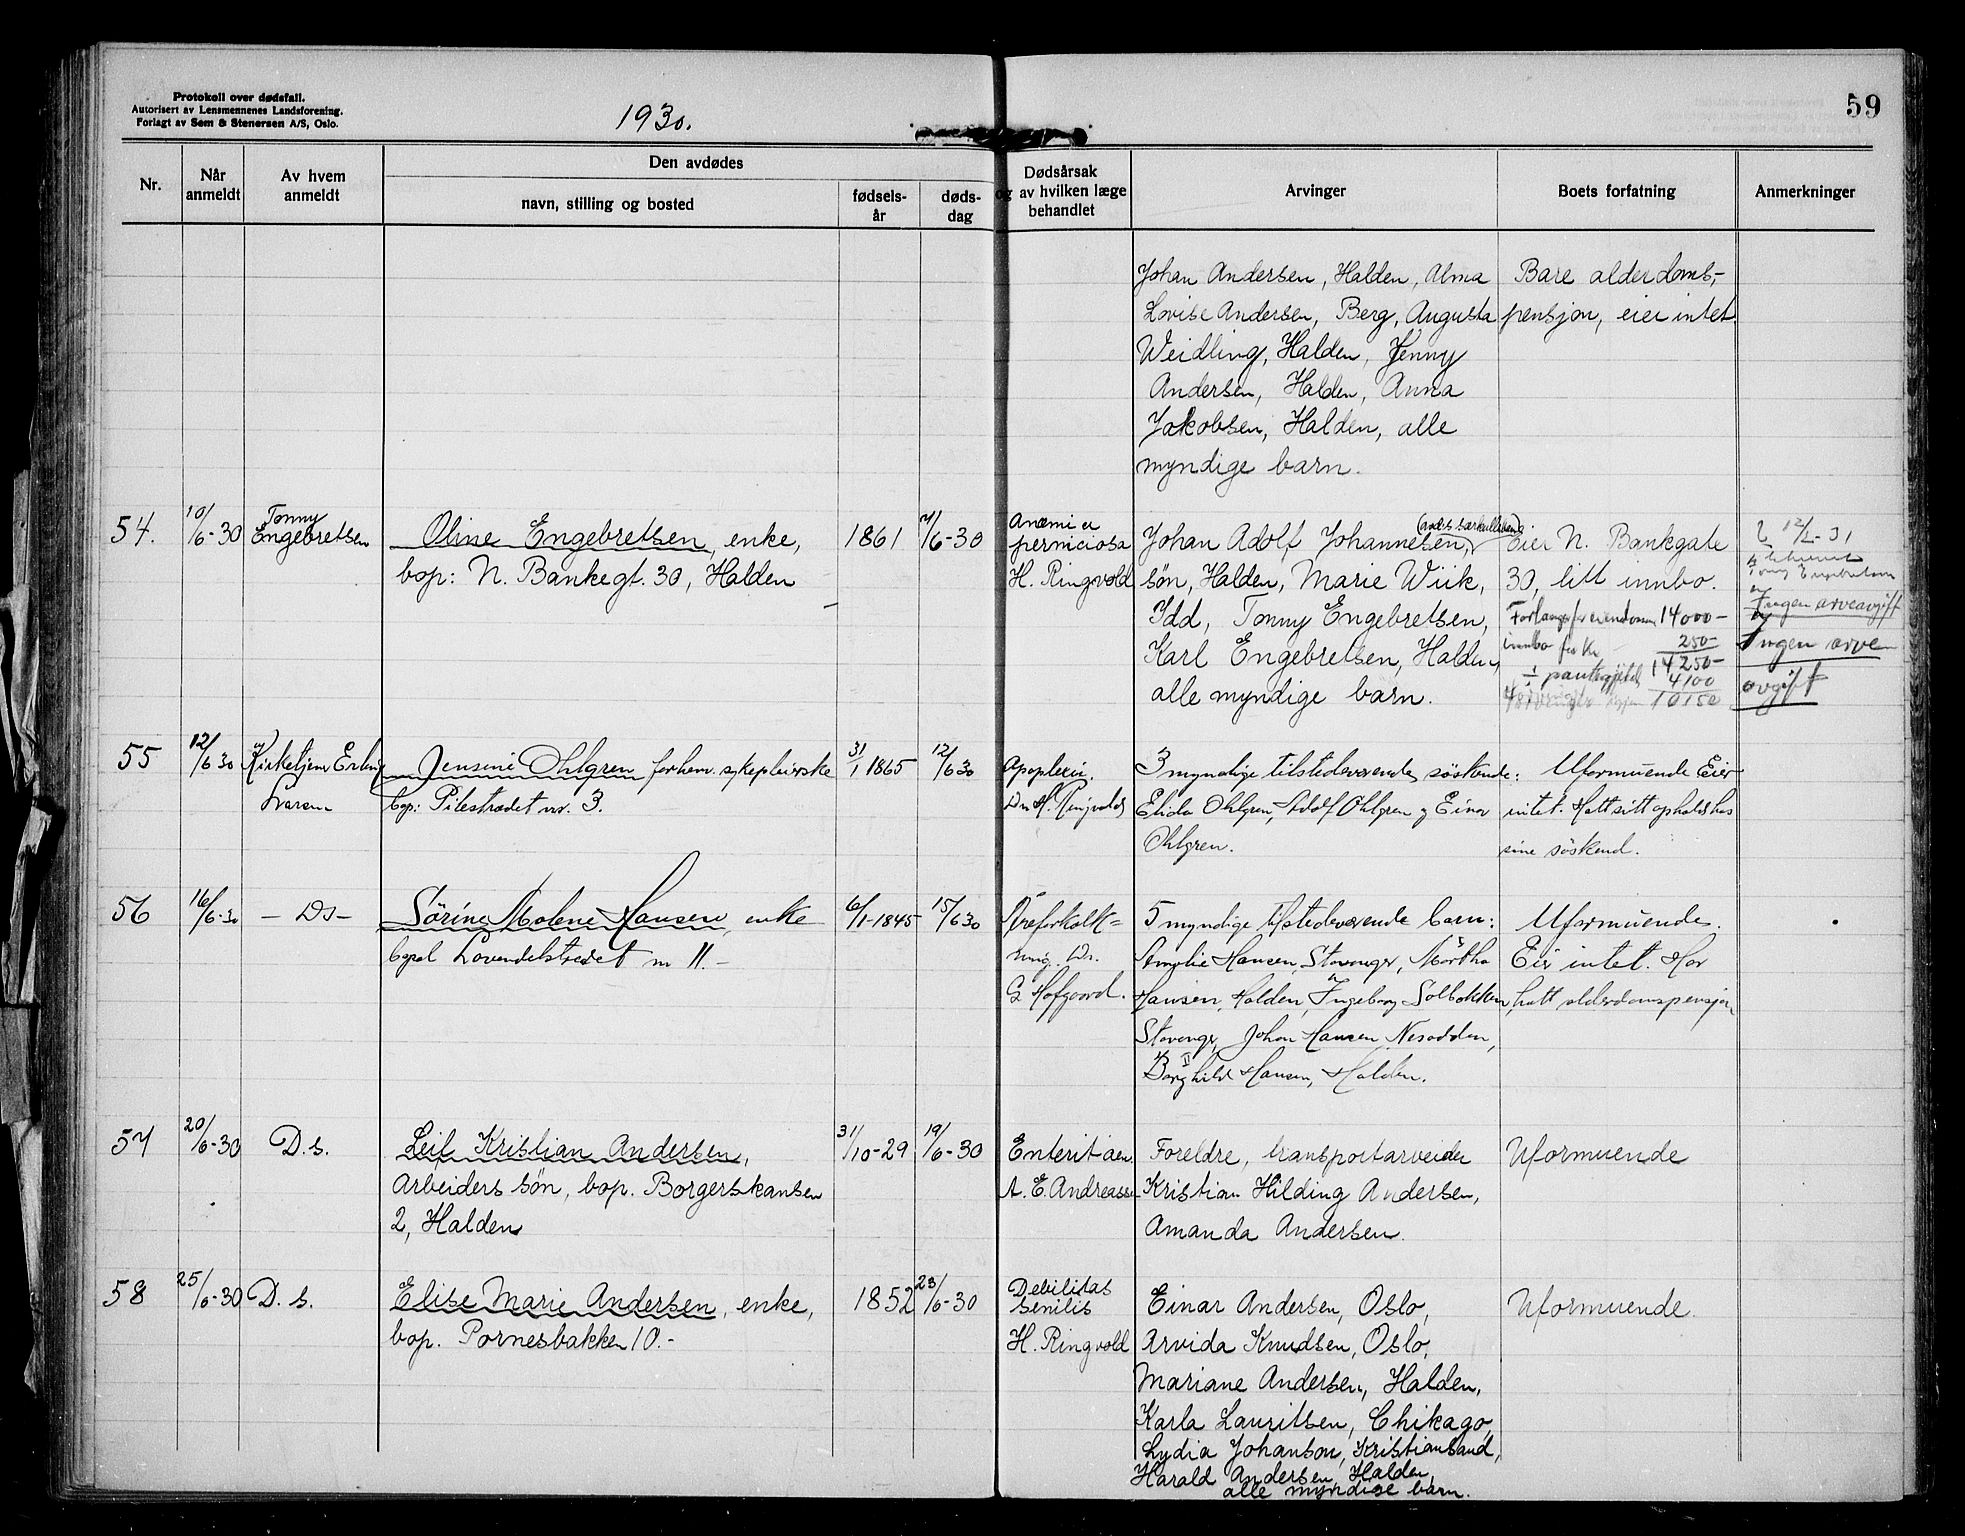 Protokoll over dødsfall.
Autorisert av Lensmennenes Landsforening.
Forlagt av Sem & Stenersen A/S, Oslo.
1930.
59
Nr.
Når anmeldt
Av hvem anmeldt
Den avdødes
navn, stilling og bosted
fødsels-år
døds-dag
Dødsårsak
og av hvilken læge
behandlet
Arvinger
Boets forfatning
Anmerkninger
Johan Andersen, Halden, Alma
Lovise Andersen, Berg, Augusta
Weidling, Halden, Jenny
Andersen, Halden, Anna
Jakobsen, Halden, alle
myndige barn.
Bare alderdoms-
pensjon, eier intet.
54.
10/6-30
Tonny
Engebretsen
Oline Engebretsen, enke,
bop: N. Bankegt. 30, Halden
1861
7/6-30
Anæmi
perniciosa
H. Ringvold
Johan Adolf Johannesen,
søn, Halden, Marie Wiik,
Idd, Tonny Engebretsen,
Karl Engebretsen, Halden,
alle myndige barn.
Eier N. Bankgate
30, litt innbo.
14000-
innbo for kr 250-
14250-
÷ pantegjeld 4100
10150
12/2-31
Ingen arveavgift
Ingen arve
avgift
55
12/6 30
Kirketjener Erling
Larsen
Jensine Ohlgren forhenv. sykepleierske
bop: Pilestrædet nr. 3.
31/1 1865
12/6 30
Apoplexi.
Dr. H. Ringvold
3 myndige tilstedeværende søskende:
Elida Ohlgren, Adolf Ohlgren og Einar
Ohlgren.
Uformuende Eier
intet. Hatt sitt ophold hos
sine søskend.
56
16/6-30
- Ds -
Sørine Molene Hansen, enke
bopæl Lavendelstrædet nr 11.-
6/1-1845
15/6 30
Åreforkalk=
ning. Dr.
G Hofgaard.
5 myndige tilstedeværende barn:
Amalie Hansen, Stavanger, Märtha
Hansen, Halden, Ingeborg Solbakken,
Stavanger, Johan Hansen Nesodden,
Borghild Hansen, Halden.
Uformuende.
Eier intet. Har
hatt alderdomspensjon
57
20/6-30
D.s.
Leif Kristian Andersen,
Arbeiders søn, bop. Borgerskansen
2, Halden
31/10-29
19/6-30
Enterit
A. E. Andreassen
Foreldre, transportarbeider
Kristian Hilding Andersen,
Amanda Andersen.
Uformuende
58
25/6-30
D. s.
Elise Marie Andersen, enke,
bop. Pornesbakken 10.-
1852
23/6-30
Debilitas
senilis
H. Ringvold
Einar Andersen, Oslo,
Arvida Knudsen, Oslo,
Mariane Andersen, Halden,
Karla Lauritsen, Chikago,
Lydia Johanson, Kristiansand,
Harald Andersen, Halden,
alle myndige barn.
Uformuende.